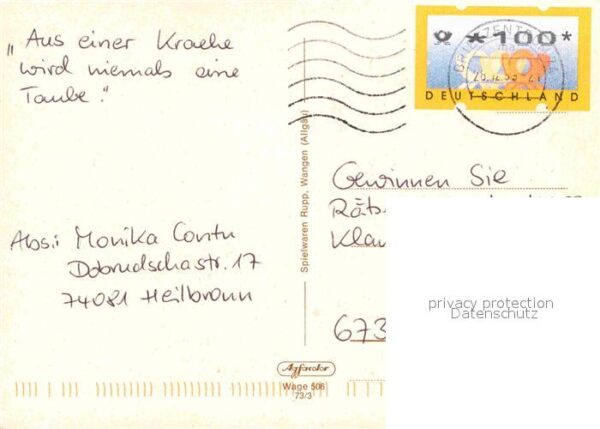 „Aus einer Kraehe
wird niemals eine
Taube."
Abs.: Monika Contu
Dobrudschastr. 17
74081 Heilbronn
Spielwaren Rupp, Wangen (Allgäu)
*100*
BRIEFZENTRUM
DEUTSCHLAND
Gewinnen Sie
673
privacy protection
Datenschutz
Agfacolor
Wage 506
73/3